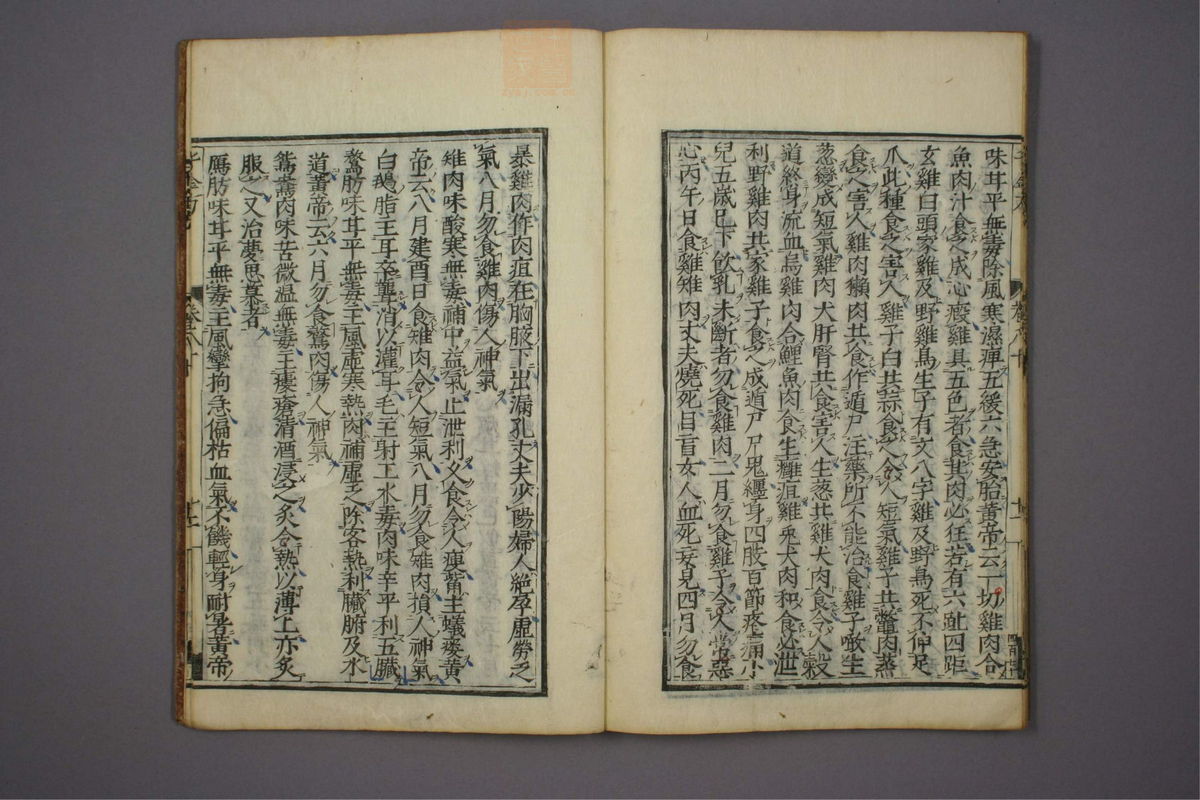 味甘平無毒除風寒濕痺五緩六急安胎黃帝云一切雞肉合
魚肉汁食之成心瘕雞具五色者食其肉必狂若有六趾四距
玄雞白頭家雞及野雞鳥生子有文八字雞及野鳥死不伸足
爪此種食之害人雞子白共蒜食之令人短氣雞子共鱉肉蒸
食之害人雞肉獺肉共食作遁尸注藥所不能治食雞子噉生
葱變成短氣雞肉犬肝腎共食害人生葱共雞犬肉食令人穀
道終身流血烏雞肉合鯉魚肉食生癰疽雞兎犬肉和食必泄
利野雞肉共家雞子食之成遁尸尸鬼纏身四肢百節疼痛小
兒五歲已下飲乳未斷者勿食雞肉二月勿食雞子令人常惡
心丙午日食雞雉肉丈夫燒死目盲女人血死妄見四月勿食
暴雞肉作肉疽在胸腋下出漏孔丈夫少陽婦人絶孕虛勞乏
氣八月勿食雞肉傷人神氣
雉肉味酸寒無毒補中益氣止泄利久食令人瘦觜主蟻瘻黃
帝云八月建酉日食雉肉令人短氣八月勿食雉肉損人神氣
白鵝脂主耳卒聾消以灌耳毛主射工水毒肉味辛平利五臟
鶩肪味甘平無毒主風虛寒熱肉補虛乏除客熱利臟腑及水
道黃帝云六月勿食鶩肉傷人神氣
鴛鴦肉味苦微温無毒主瘻瘡清酒浸之炙令熱以薄之亦炙
服之又治夢思慕者
鴈肪味甘平無毒主風攣拘急偏枯血氣不饑輕身耐暑黃帝